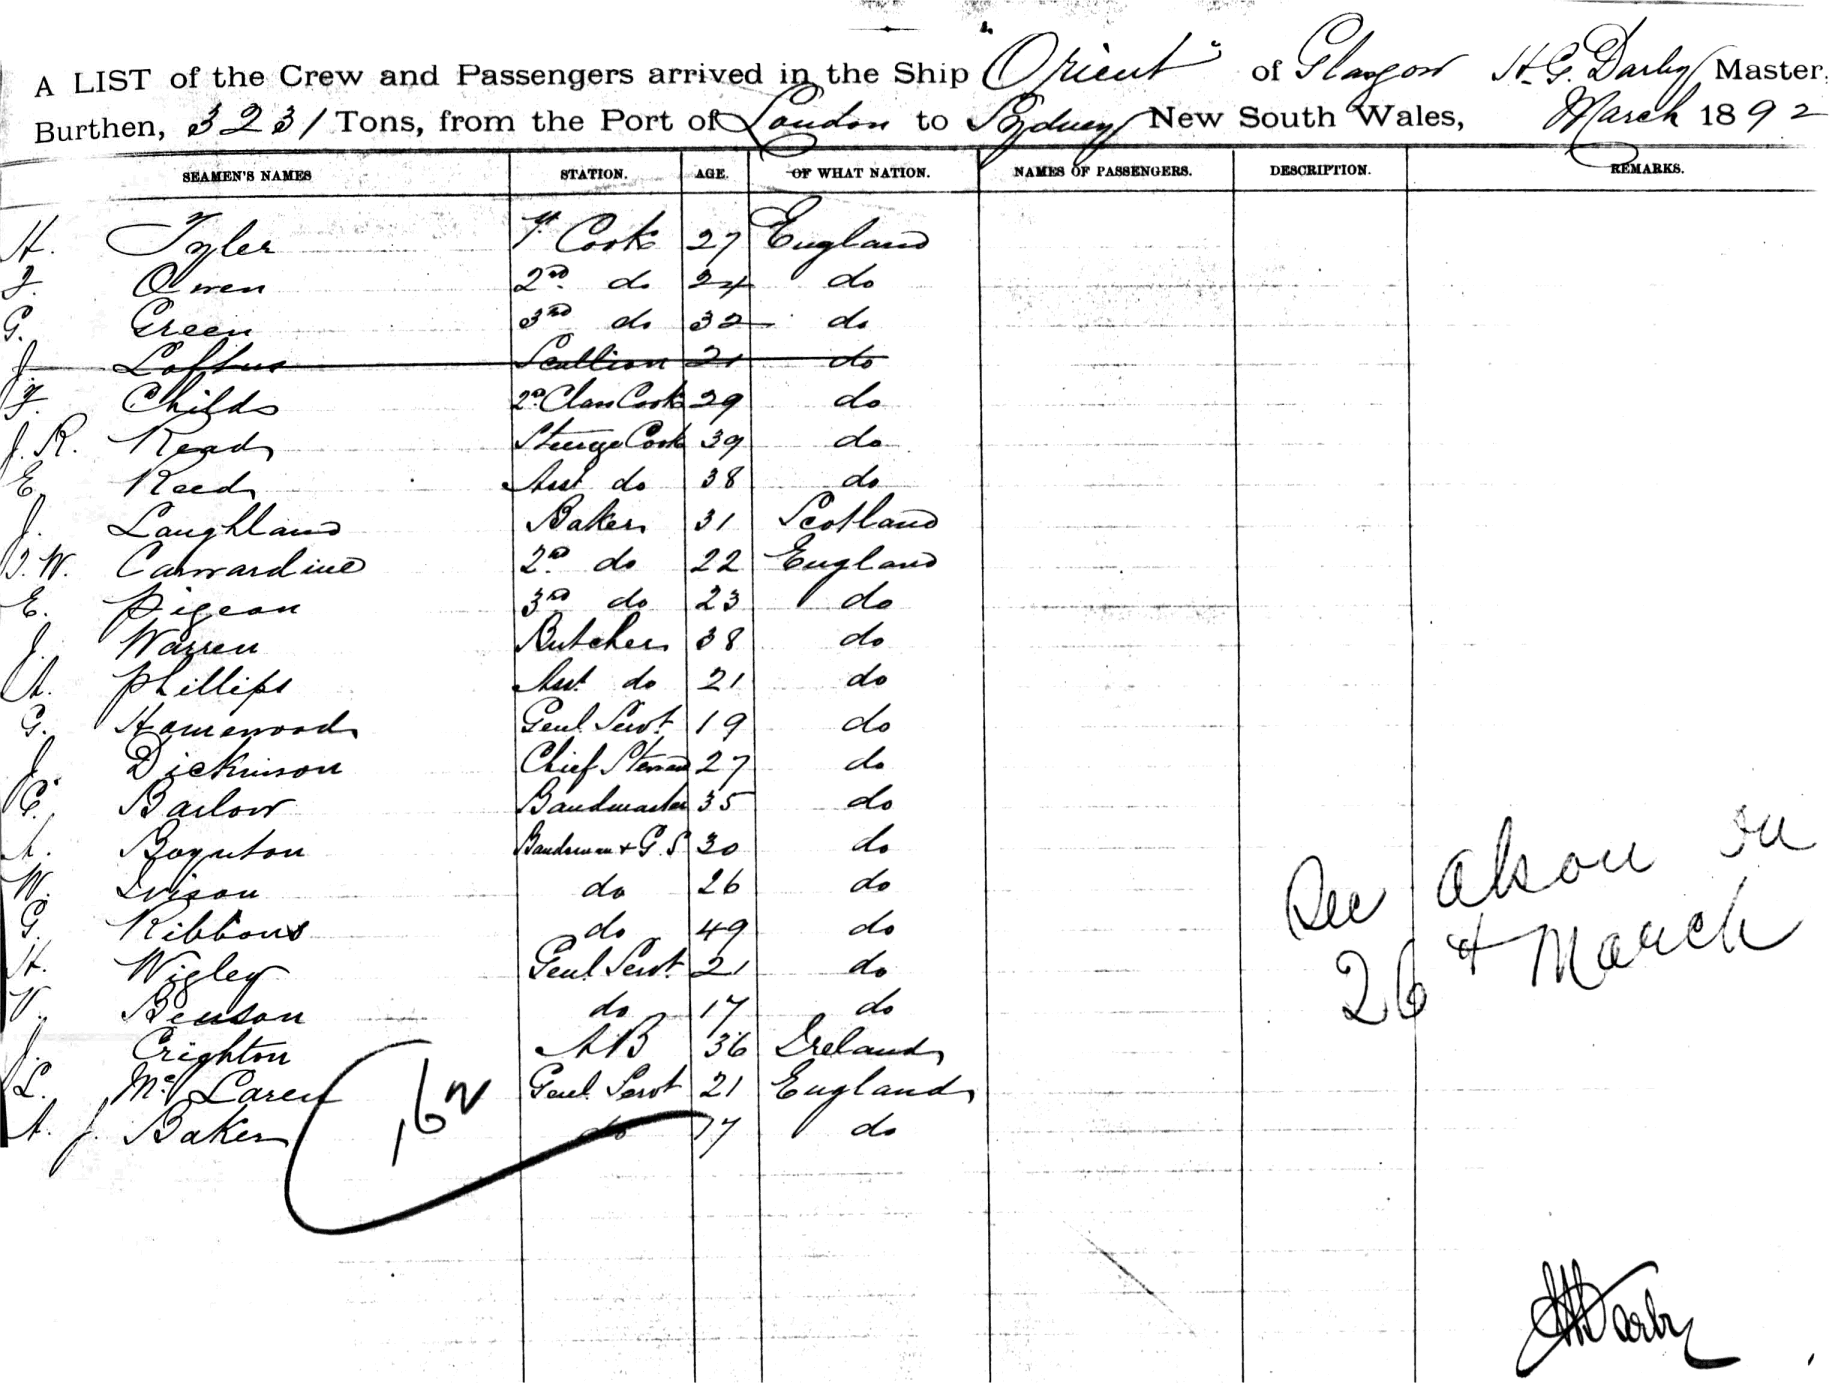 A LIST of the Crew and Passengers arrived in the Ship "Orient" of Glasgow H. G. Darby Master,
Burthen, 3231 Tons, from the Port of London to Sydney New South Wales, March 1892
SEAMEN'S NAMES STATION. AGE. OF WHAT NATION. NAMES OF PASSENGERS. DESCRIPTION. REMARKS.
H. Tyler 1st Cook 27 England
F. Owen 2nd do 24 do
G. Green 3rd do 32 do
J. Loftus Scullion 21 do
F. Childs 2nd Class Cook 29 do
J. R. Read Steerge Cook 39 do
E. Reed Asst do 38 do
J. Laughland Baker 31 Scotland
J. W. Carwardine 2nd do 22 England
E. Pigeon 3rd do 23 do
J. Warren Butcher 38 do
A. Phillips Asst do 21 do
G. Homewood Genl Servt 19 do
J. Dickinson Chief Steward 27 do
C. Barlow Bandmaster 35 do
A. Boynton Bandsman & G. S 30 do
W. Ivison do 26 do
G. Ribbons do 49 do
H. Wigley Genl Servt 21 do
V. Benson do 17 do
J. Crighton AB 36 Ireland
L. McLaren Genl Servt 21 England
A. J. Baker do 17 do
162
See
26 March
Darby